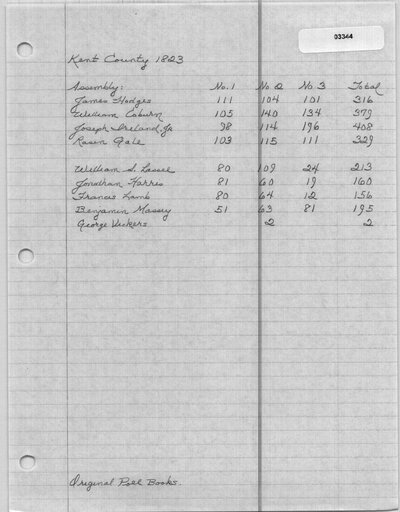 03344
Kent County 1823
Assembly: No. 1 No 2 No 3 Total
James Hodges 111 104 101 316
William Coburn 105 140 134 379
Joseph Ireland, Jr 98 114 196 408
Rasin Gale 103 115 111 329
William S. Lassell 80 109 24 213
Jonathan Harris 81 60 19 160
Francis Lamb 80 64 12 156
Benjamin Massey 51 63 81 195
George Vickers 2 2
Original Poll Books.